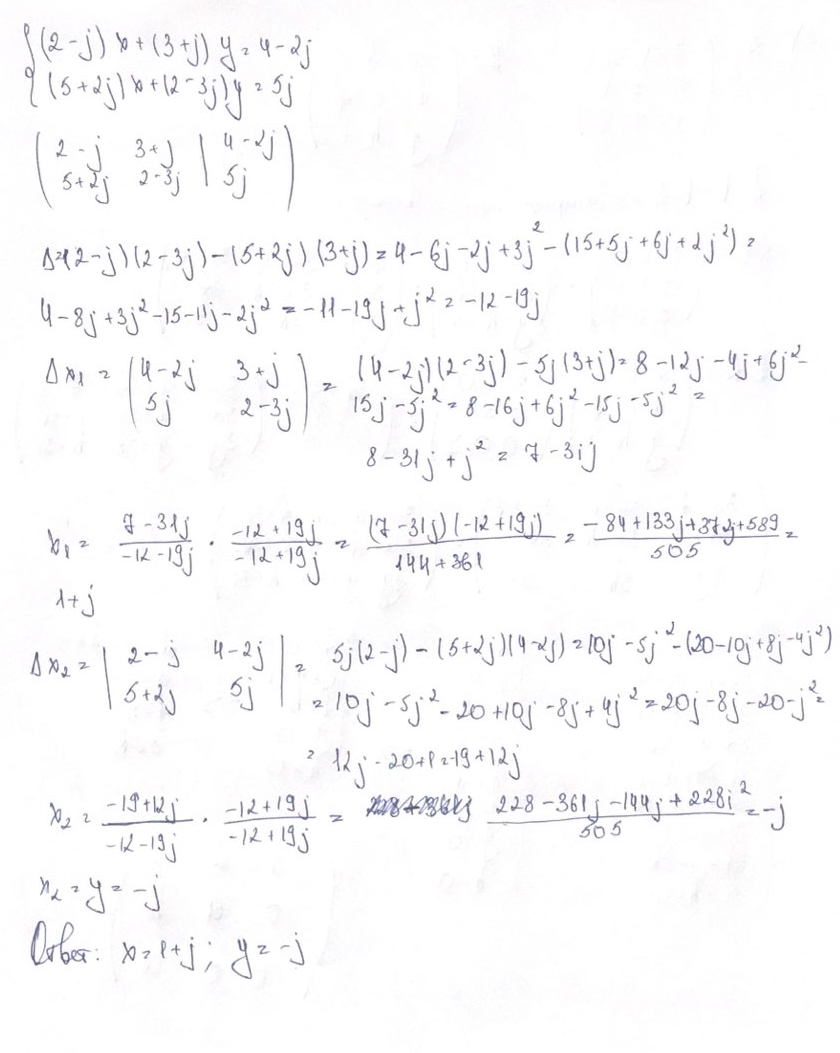 { (2-j) x + (3+j) y = 4-2j
{ (5+2j) x + (2-3j) y = 5j
( 2-j 3+j | 4-2j )
( 5+2j 2-3j | 5j )
Δ=(2-j)(2-3j)-(5+2j)(3+j)=4-6j-2j+3j²-(15+5j+6j+2j²)=
4-8j+3j²-15-11j-2j² = -11-19j+j² = -12-19j
Δx₁ = ( 4-2j 3+j ) = (4-2j)(2-3j)-5j(3+j)=8-12j-4j+6j²-
( 5j 2-3j ) 15j-5j²=8-16j+6j²-15j-5j² =
8-31j+j² = 7-31j
x₁ = (7-31j)/(-12-19j) · (-12+19j)/(-12+19j) = (7-31j)(-12+19j)/(144+361) = (-84+133j+372j+589)/505 =
1+j
Δx₂ = | 2-j 4-2j | = 5j(2-j)-(5+2j)(4-2j)=10j-5j²-(20-10j+8j-4j²)
| 5+2j 5j | = 10j-5j²-20+10j-8j+4j²=20j-8j-20-j²=
= 12j-20+1=-19+12j
x₂ = (-19+12j)/(-12-19j) · (-12+19j)/(-12+19j) = (228-361j-144j+228j²)/505 = -j
x₂ = y = -j
Ответ: x=1+j; y=-j